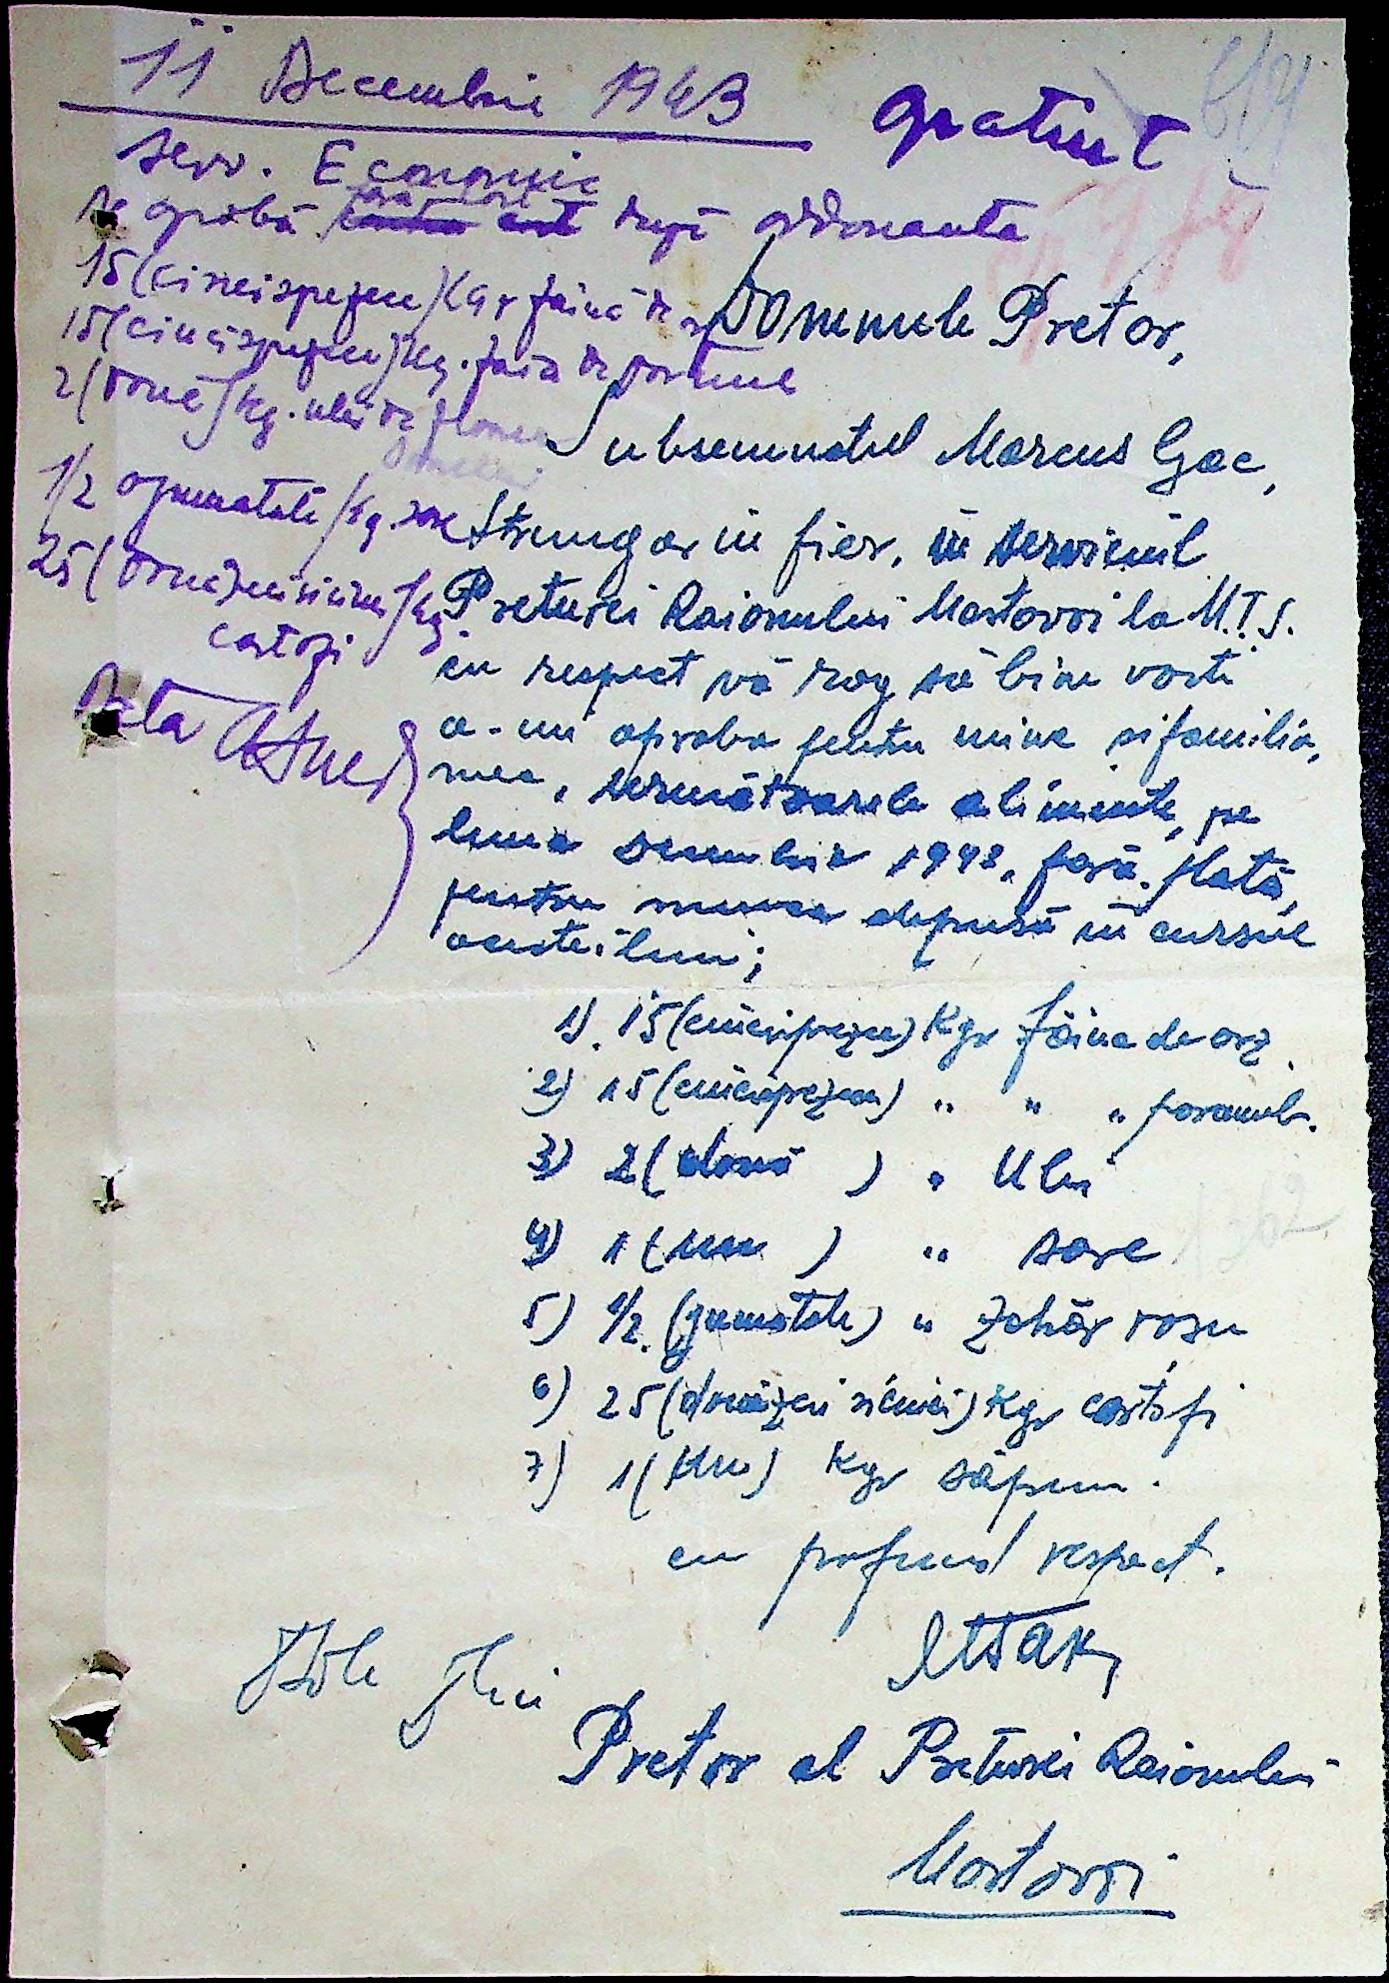 11 Decembrie 1943
gratuit
Serv. Economic
Se aprobă după ordonanta
15 (cincisprezece) Kgr făină de orz
15 (cincisprezece) Kg. făină de porumb
2 (două) Kg. ulei de floarea
1/2 (jumatate) Kg. sare
25 (douăzecisicinci) Kg
cartofi
Domnule Pretor,
Subsemnatul Marcus Gac,
Strungar in fier, in serviciul
Preturei Raionului Mostovoi la M.T.S.
cu respect vă rog să bine voiti
a-mi aproba pentru mine si familia
mea, următoarele alimente, pe
luna Decembrie 1943, fără plată,
pentru munca depusă in cursul
acestei luni;
1). 15 (cincisprezece) Kgr făina de orz
2) 15 (cincisprezece) " " " porumb.
3) 2 (două ) " Ulei
4) 1 (un ) " sare
5) 1/2. (jumatate) " Zahăr rosu
6) 25 (douăzeci si cinci) Kgr cartofi
7) 1 (un) Kgr săpun.
cu profund respect.
Pretor al Preturei Raionului
Mostovoi